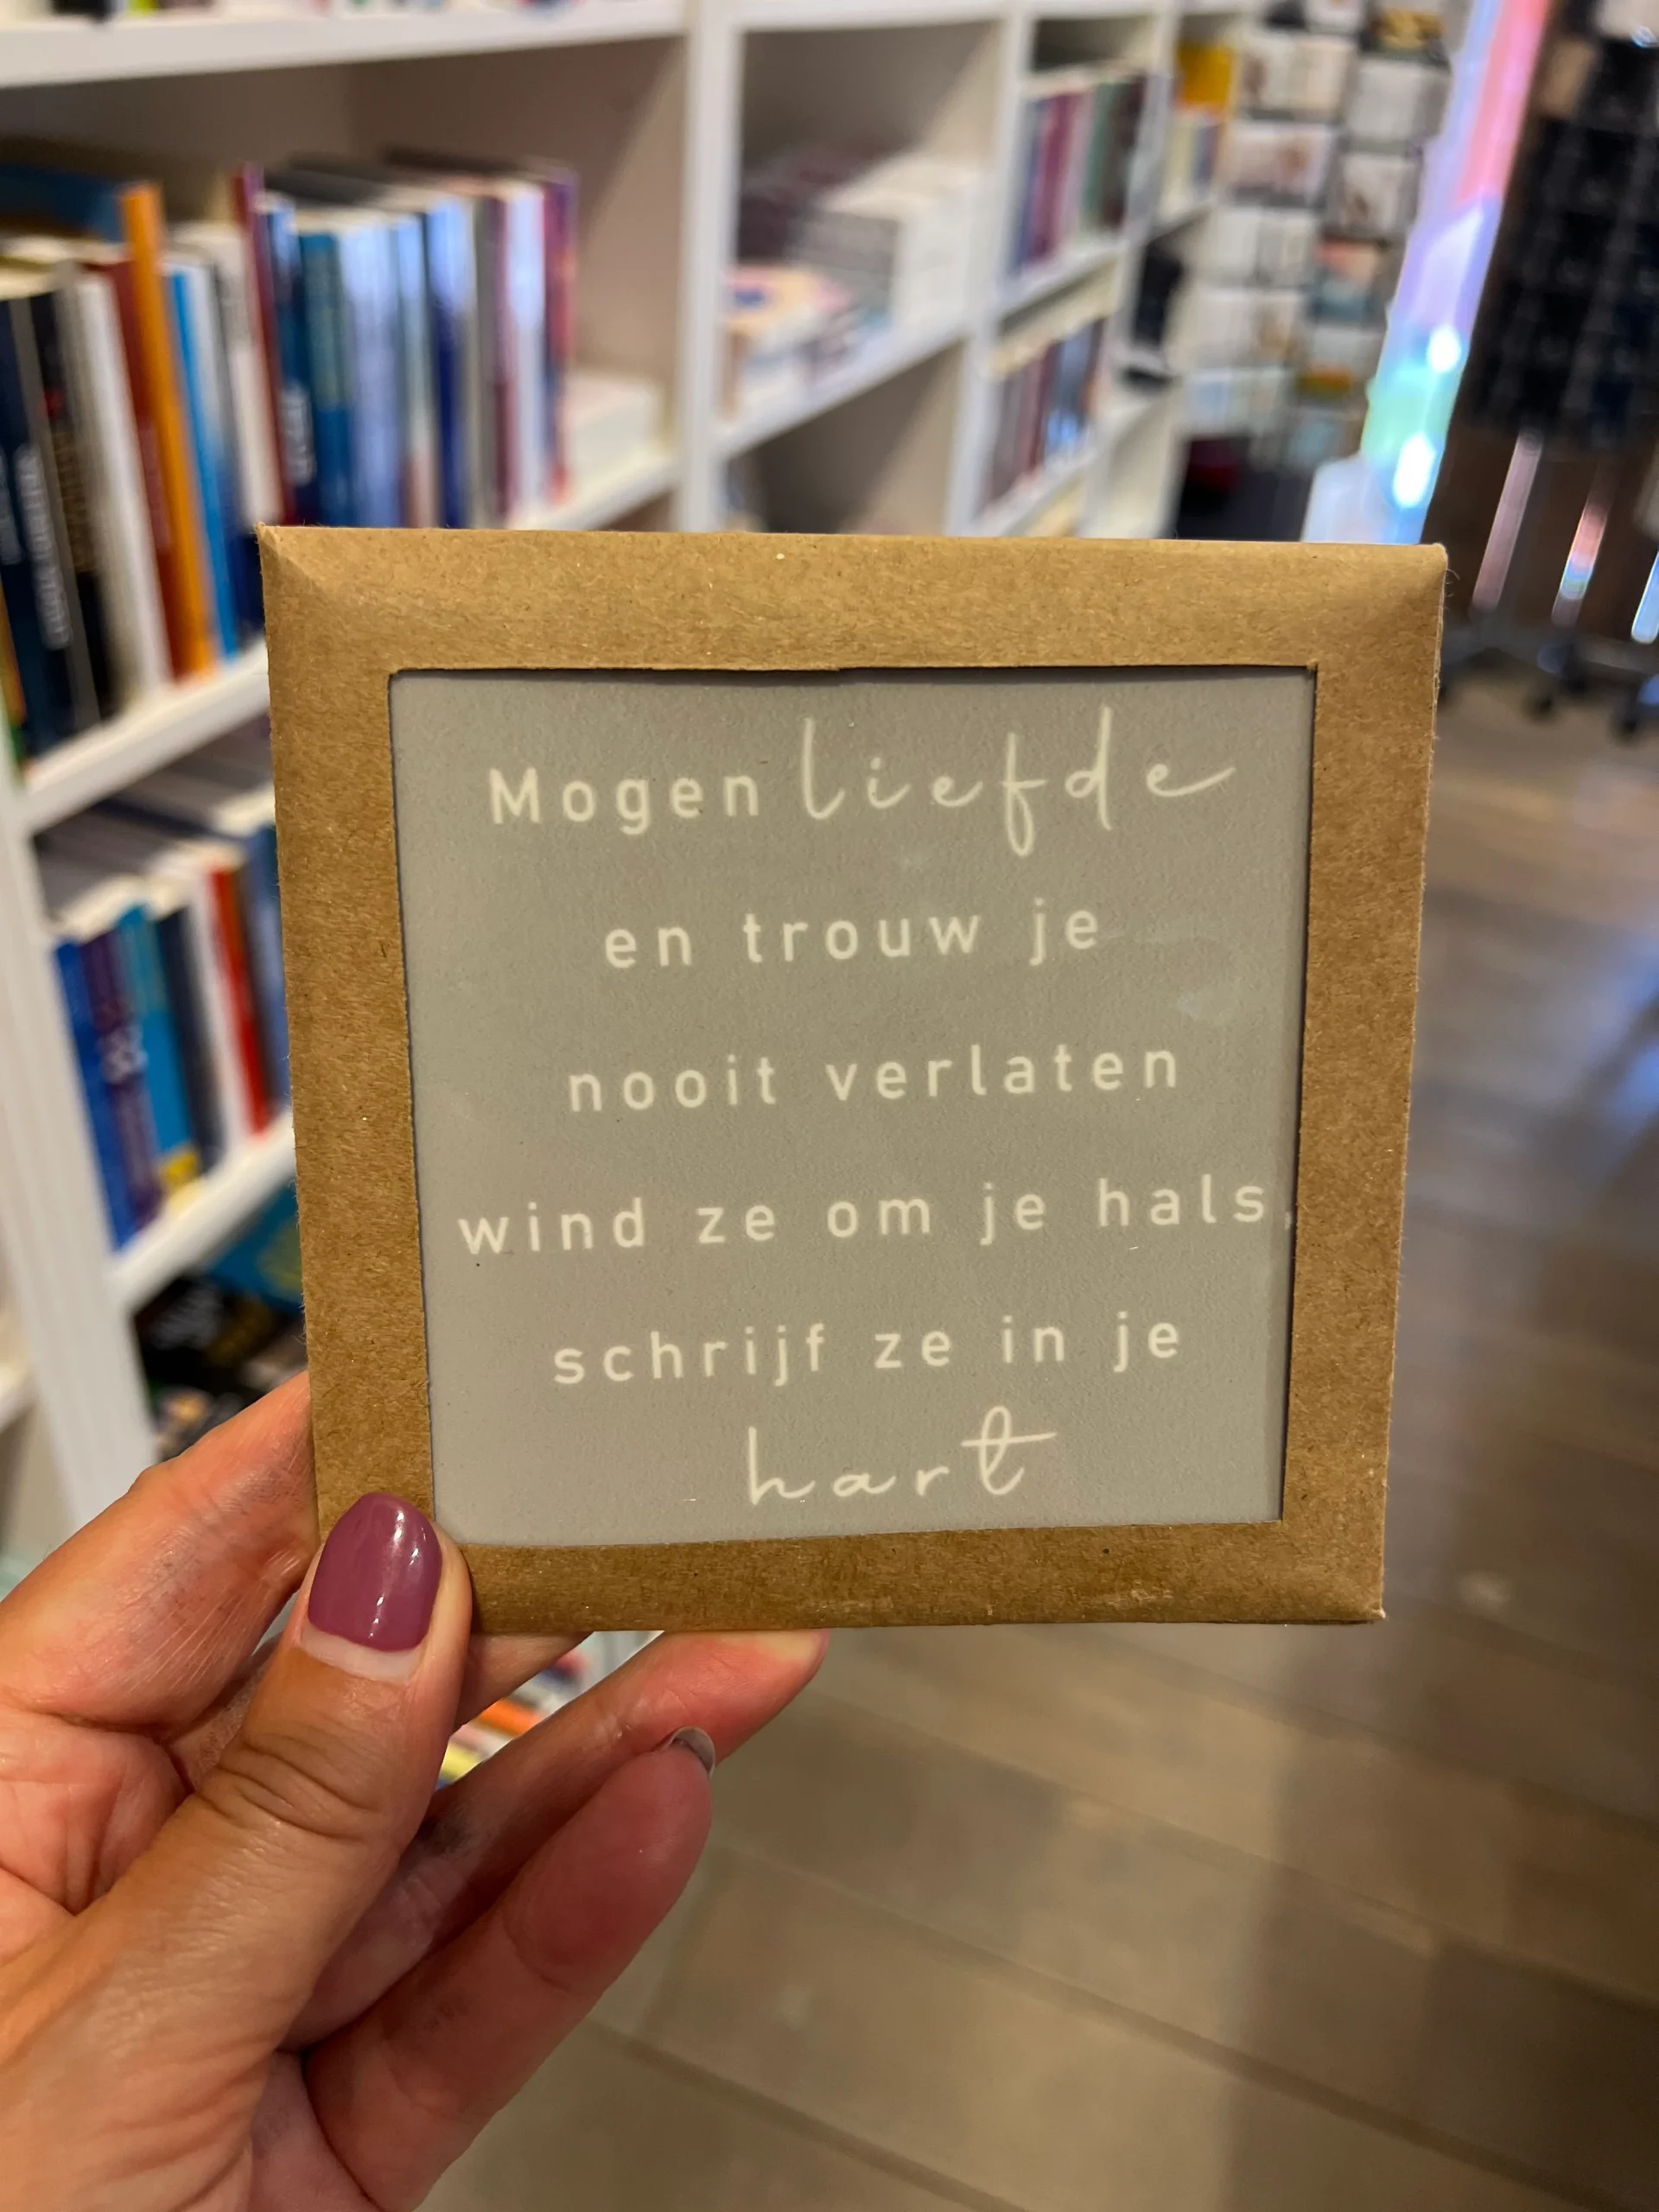 Mogen liefde
en trouw je
nooit verlaten
wind ze om je hals,
schrijf ze in je
hart